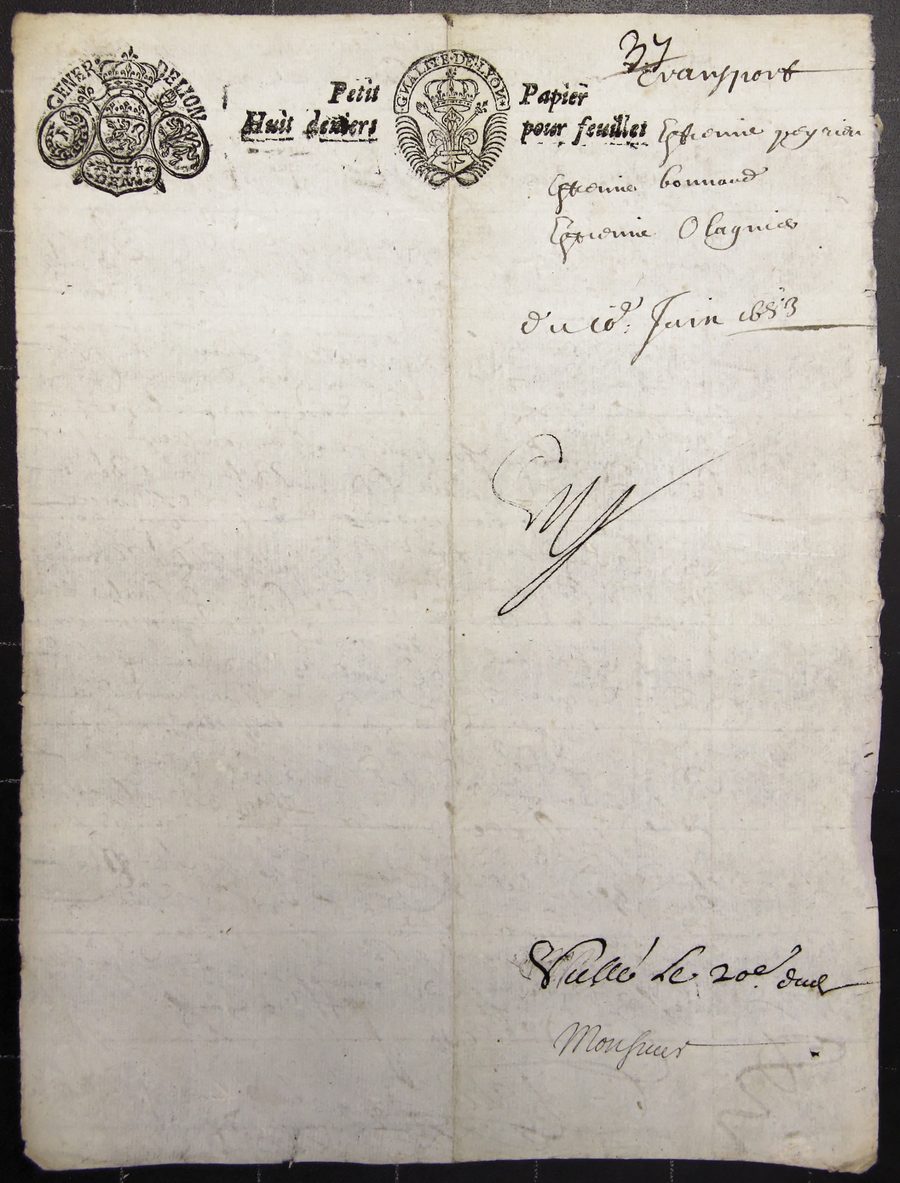 GENER · DE LYON
HUIT
DEN
Petit
Huit deniers
GNALITE · DE · LYON
Papier
pour feuillet
37
Transport
Estienne peyrieu
Estienne bonnand
Estienne Olagnier
du 10e Juin 1683
Vissé Le 20e dud
Monsieur